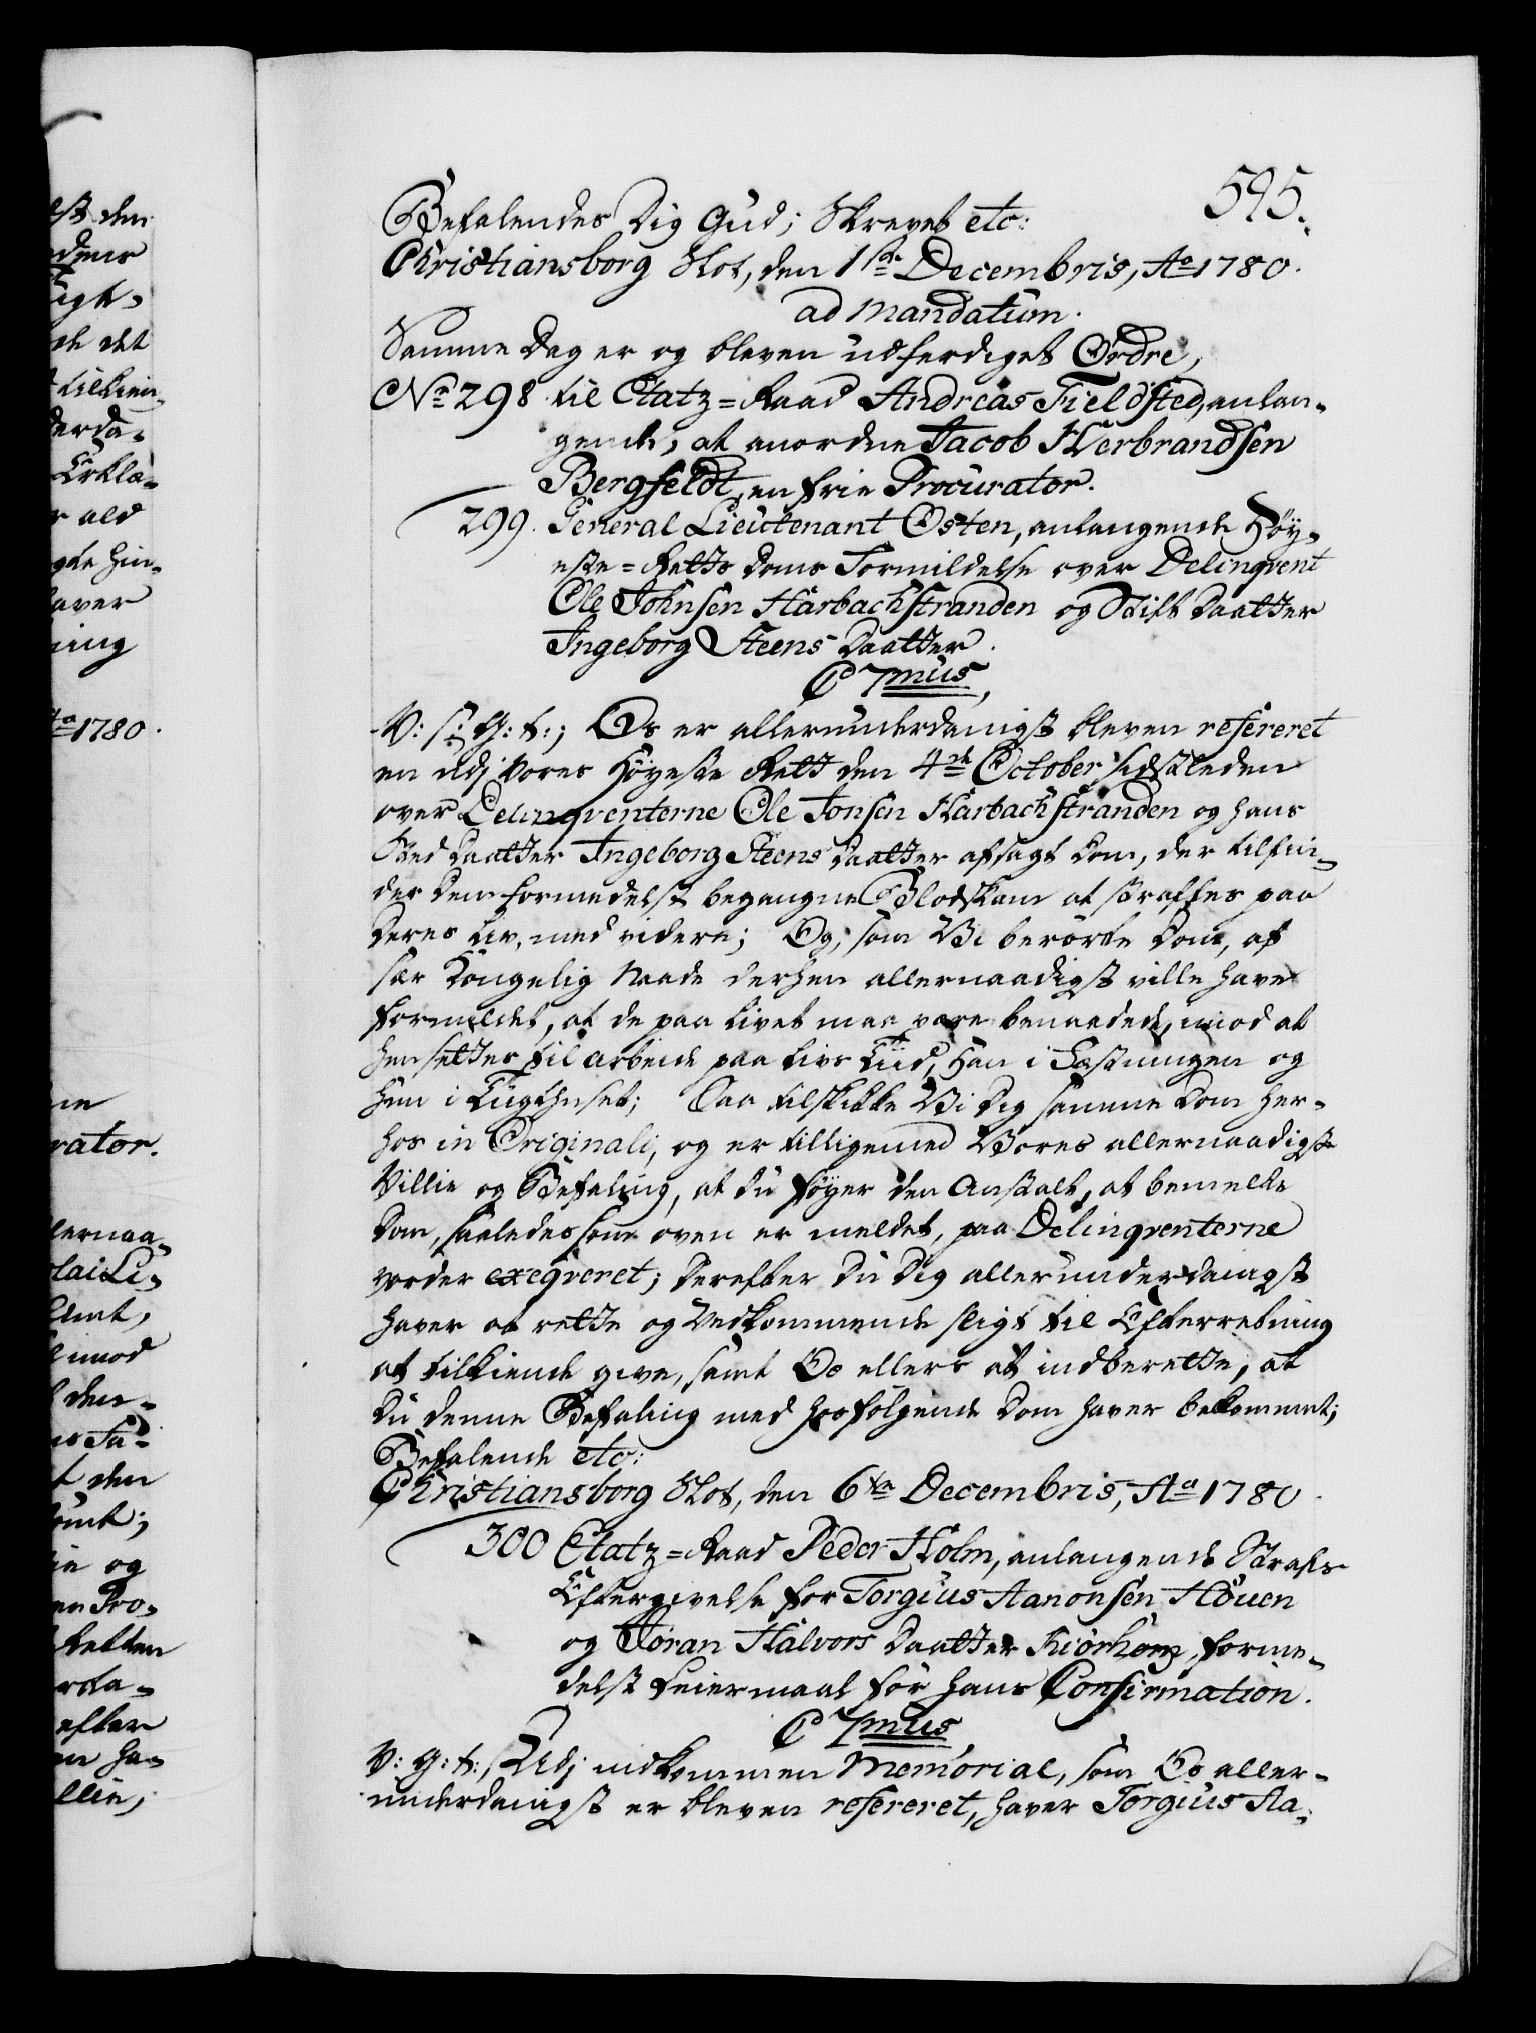 595.
Befalendes Dig Gud; Skrevet etc:
Christiansborg Slot, den 1ste Decembris, Ao 1780.
ad mandatum.
Samme Dag er og bleven udferdiget Ordre,
No 298 til Etatz=Raad Andreas Fieldsted, anlan-
gende, at anordne Jacob Herbrandsen
Bergfeldt, en frie Procurator.
299. General Lieutenant Osten, anlangende Höy-
este=Retts Doms Formildelse over Delinqvent
Ole Johnsen Harbachstranden og Stift Daatter
Ingeborg Steens Daatter.
C 7mus,
V: s: G: t:; Os er allerunderdanigst bleven refereret
en udj Vores Höyeste Rett den 4de October sidstleden
over Delinqventerne Ole Jonsen Harbachstranden og hans
Sted Daatter Ingeborg Steens Daatter afsagt Dom, der tilfin-
der Dem formedelst begangne Blodskam at straffes paa
Deres Liv, med videre; Og, som Vi berörte Dom, af
sær Kongelig Naade derhen allernaadigst ville have
formildet, at de paa Livet maa være benaadede, imod at
hensettes til Arbeide paa Livs Tiid, Han i Fæstningen og
Hun i Tugthuset; Saa tilskikke Vi Dig samme Dom her-
hos in Originali, og er tilligemed Vores allernaadigste
Villie og Befaling, at Du föyer den Anstalt, at bemelte
Dom, saaledes som oven er meldet, paa Delinqventerne
vorder exeqveret; Derefter Du Dig allerunderdanigst
haver at rette og Vedkommende sligt til Efterretning
at tilkiende give, samt Os ellers at indberette, at
Du denne Befaling med hosfölgende Dom haver bekommet;
Befalende etc:
Christiansborg Slot, den 6te Decembris, Ao 1780.
300 Etatz=Raad Peder Holm, anlangende Strafs
Eftergivelse for Torgius Aanonsen Höuen
og Jöran Halvors Daatter Kiörhom, forme-
delst Leiermaal för hans Confirmation.
C 7mus,
V: G: t:, Udj indkommen Memorial, som Os aller-
underdanigst er bleven refereret, haver Torgius Aa-